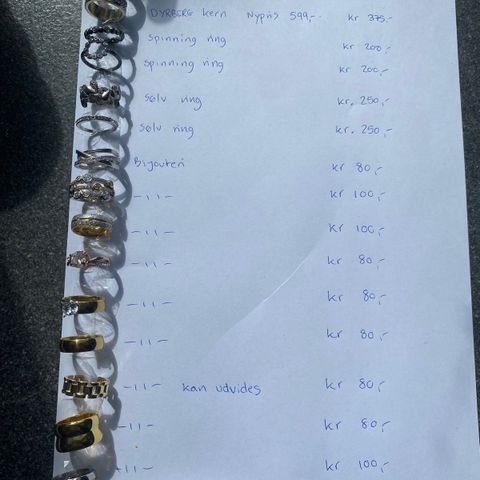 DYRBERG Kern Nypris 599,- kr 375,-
Spinning ring kr 200,-
Spinning ring kr 200,-
Sølv ring kr. 250,-
Sølv ring kr. 250,-
Bijouteri kr 80,-
-11- kr 100,-
-11- kr 100,-
-11- kr 80,-
-11- kr 80,-
-11- kr 80,-
-11- kan udvides kr 80,-
-11- kr 80,-
-11- kr 100,-